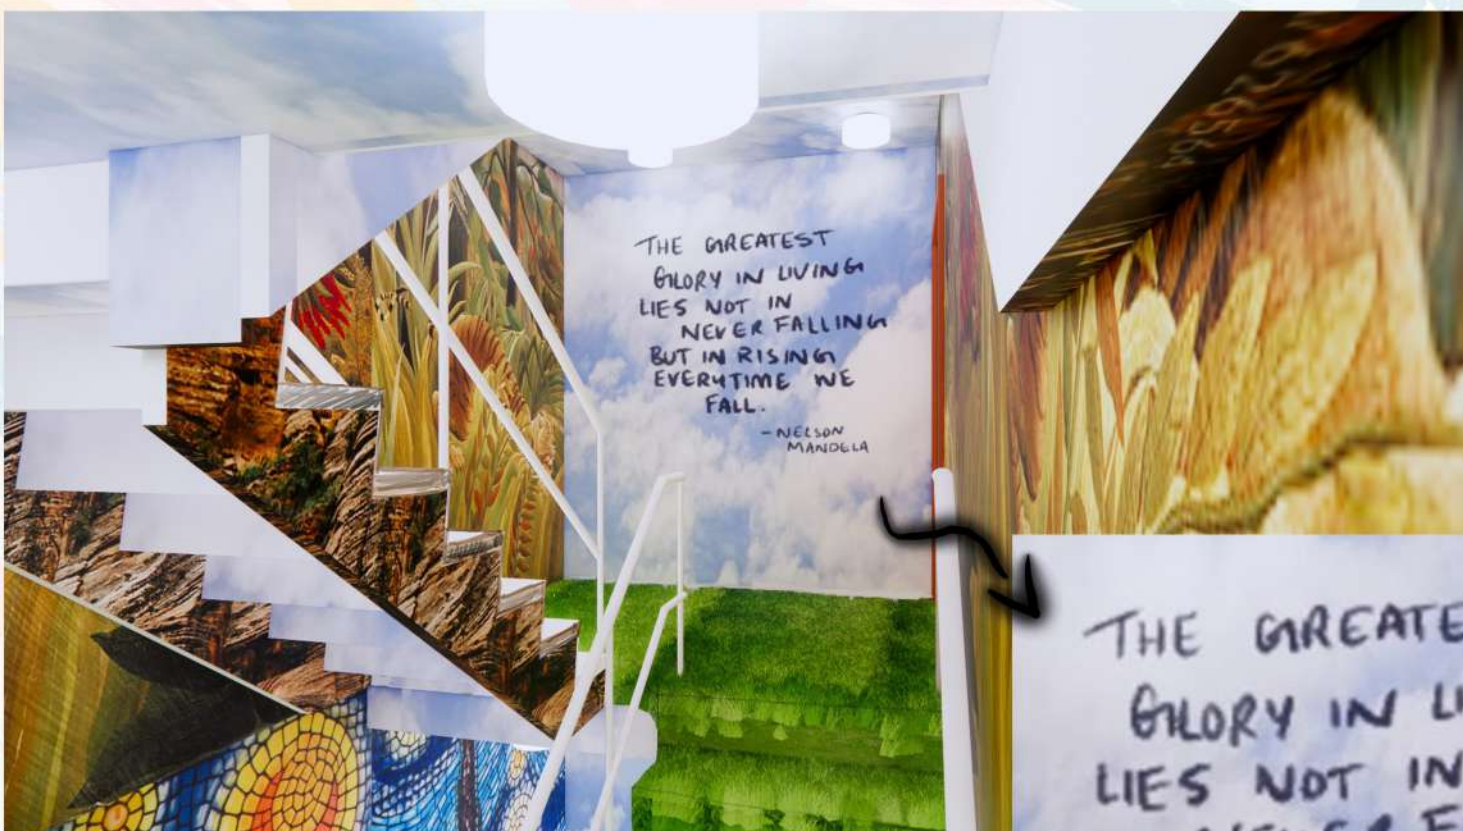 THE GREATEST
GLORY IN LIVING
LIES NOT IN
NEVER FALLING
BUT IN RISING
EVERYTIME WE
FALL.
- NELSON
MANDELA
THE GREATE
GLORY IN LI
LIES NOT IN